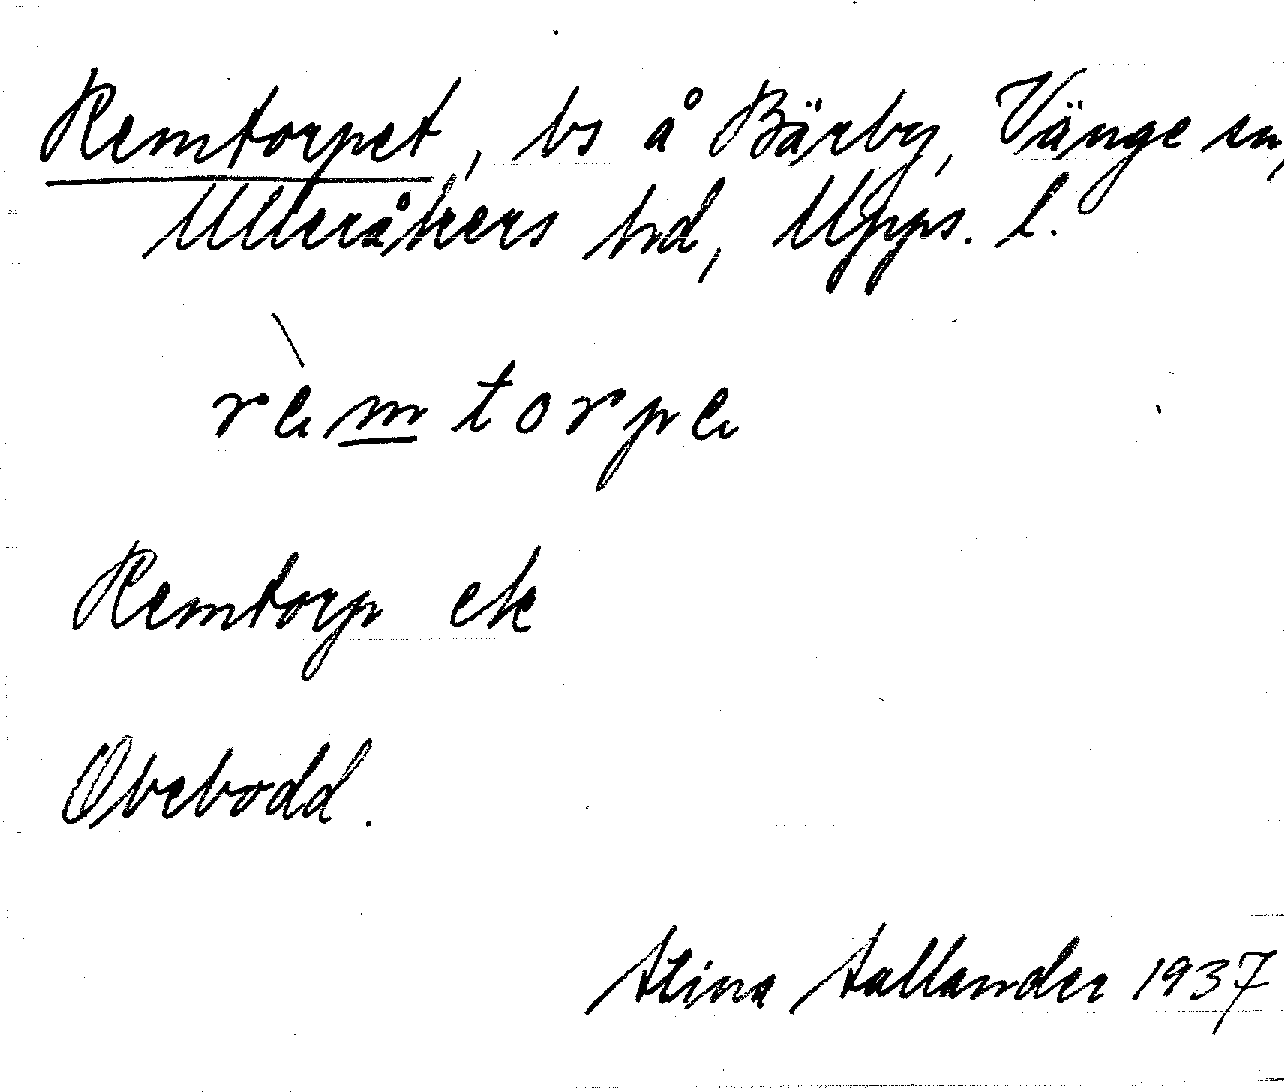 Remtorpet, bs å Bärby, Vänge sn,
Ulleråkers hd, Upps. l.
rèmtorpe
Remtorp ek
Obebodd.
Stina Sallander 1937